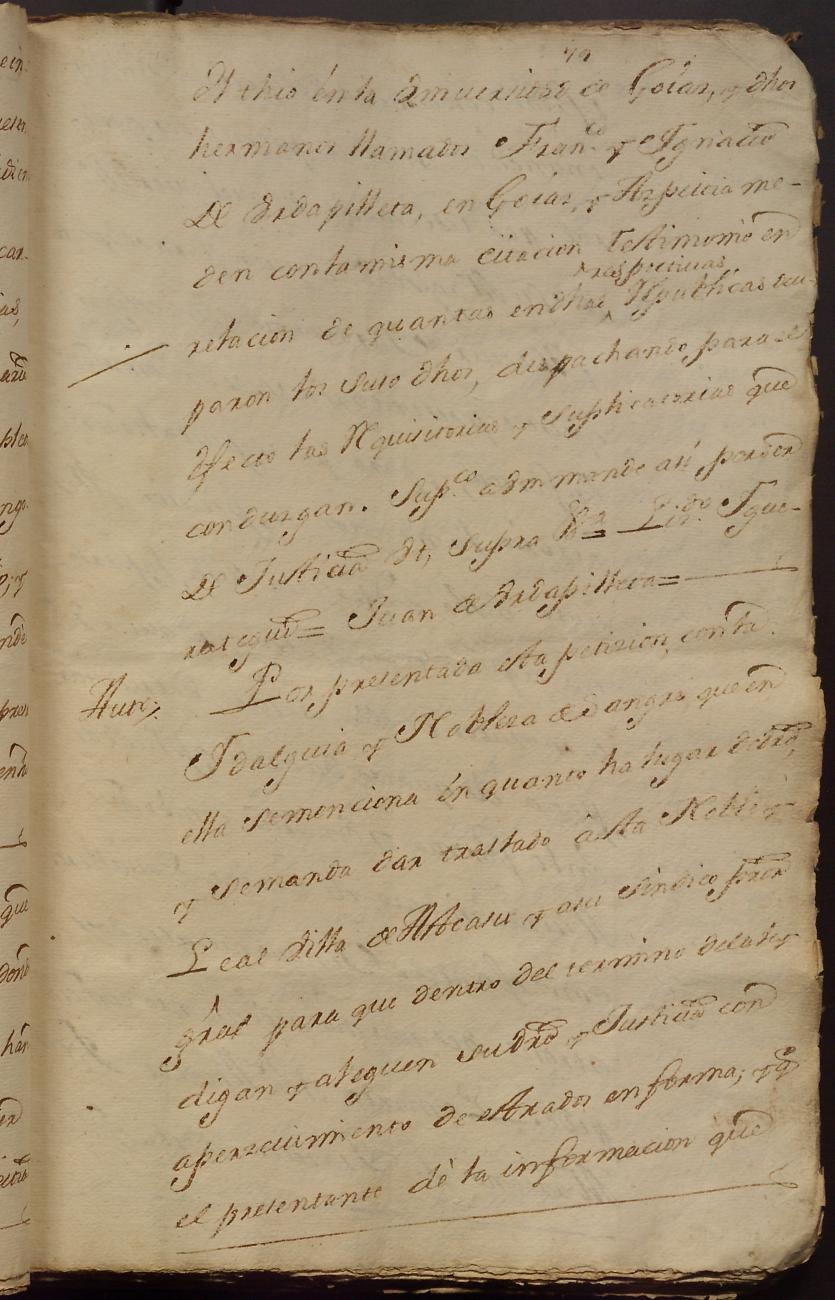 79
El thio en la Universidad de Goiaz, y dhos
hermanos llamados Franco. y Ygnacio
De Urdapilleta, en Goiaz, y Azpeitia me-
den con la misma citacion testimonio en
respectivas
relacion de quantas en dhas Republicas ocu-
paron los suso dhos, despachando para el
efecto las Requisitorias y Suplicatorias que
conduzgan. Supco. a Vm mande asi, por ser
De Justicia Et, supra Lizdo. Ygue-
ralegui = Juan de Urdapilleta =
Auto,
Por presentada esta peticion, con la
Ydalguia y Nobleza de Sangre que en
ella se menciona en quanto ha lugar de dro,
y se manda dar traslado à esta Noble y
Leal Villa de Albistur y a su Sindico Pror
gral para que dentro del termino de la ley
digan y aleguen su dro y Justicia con
aperzevimiento de estrados en forma; y q
el presentante dè la informacion que